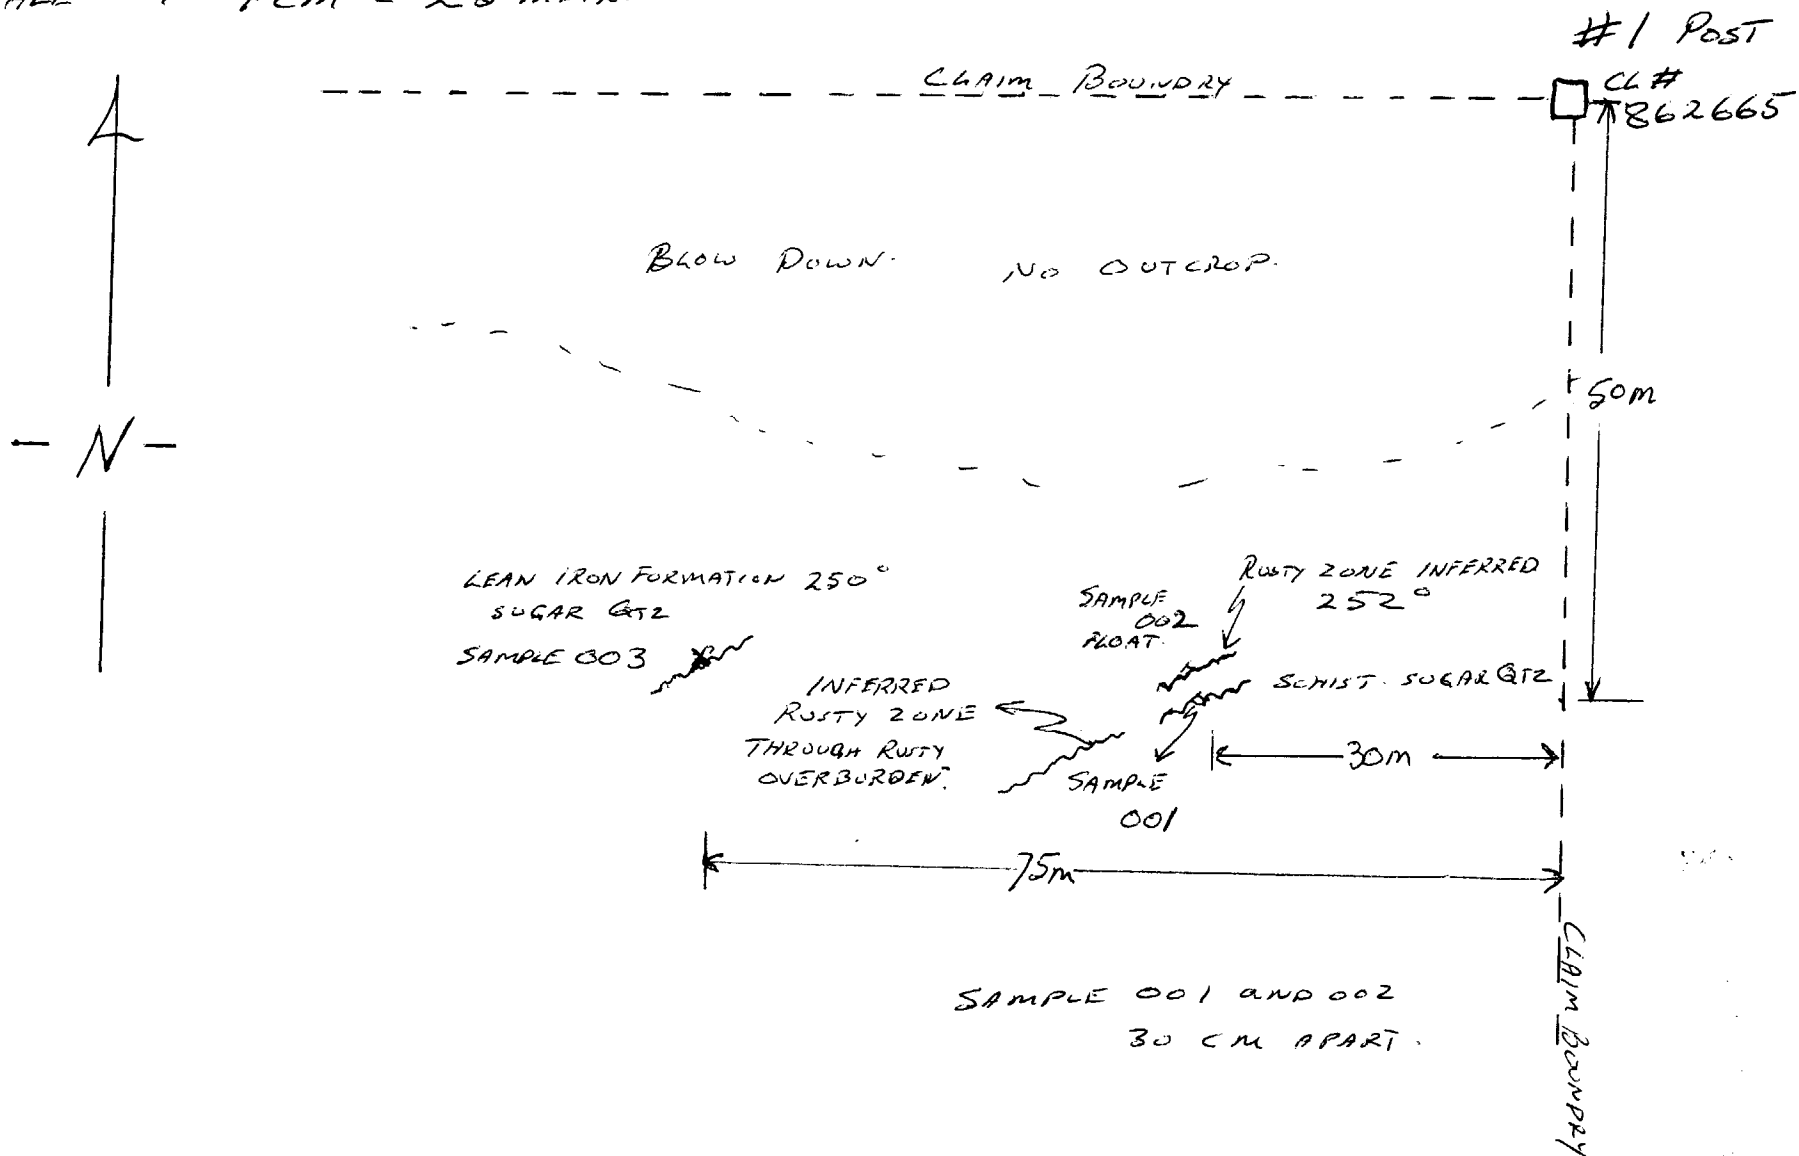 #1 POST
CL#
862665
CLAIM BOUNDRY
BLOW DOWN. NO OUTCROP.
50m
N
LEAN IRON FORMATION 250°
SUGAR QTZ
SAMPLE 003
SAMPLE
002
FLOAT.
RUSTY ZONE INFERRED
252°
SCHIST. SUGAR QTZ
INFERRED
RUSTY ZONE
THROUGH RUSTY
OVERBURDEN.
SAMPLE
001
30m
75m
CLAIM BOUNDRY
SAMPLE 001 AND 002
30 CM APART.